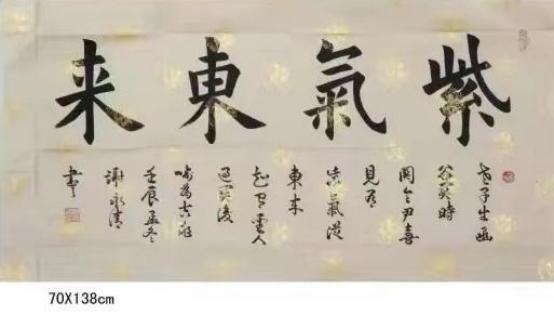 紫氣東来
老子出函
谷关時
関令尹喜
見有
紫氣從
東来
知有聖人
後
喻为吉祥
壬辰孟冬
謝永清
書
70X138cm